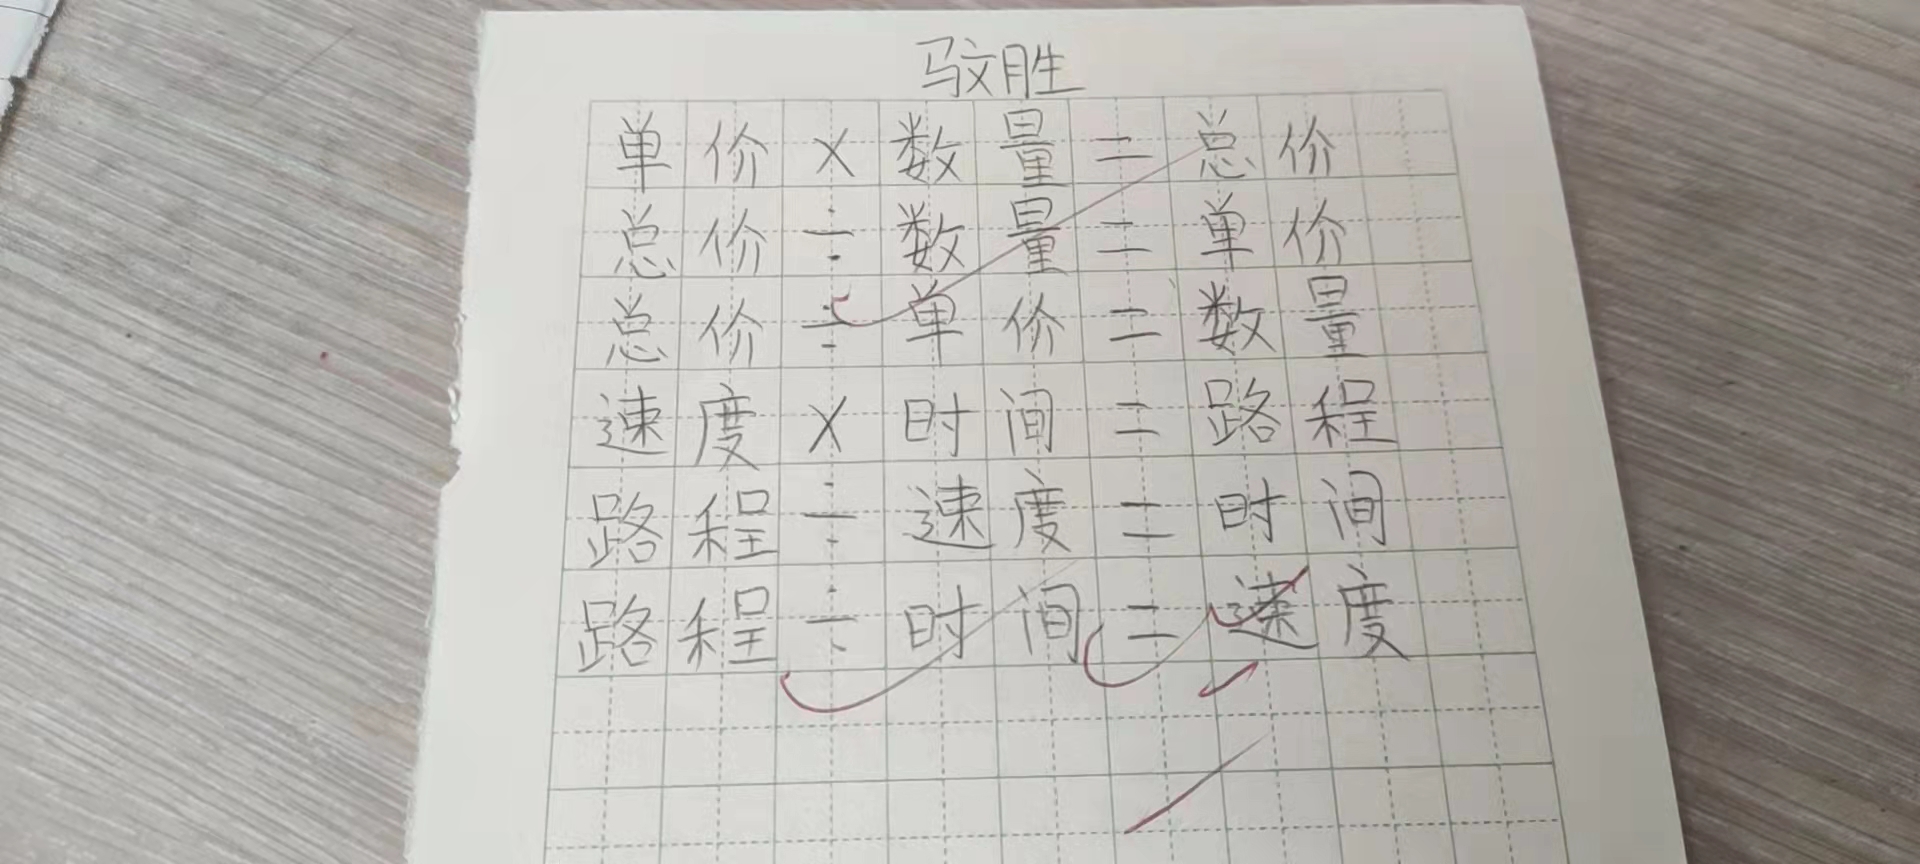 驭胜
单价×数量=总价
总价÷数量=单价
总价÷单价=数量
速度×时间=路程
路程÷速度=时间
路程÷时间=速度